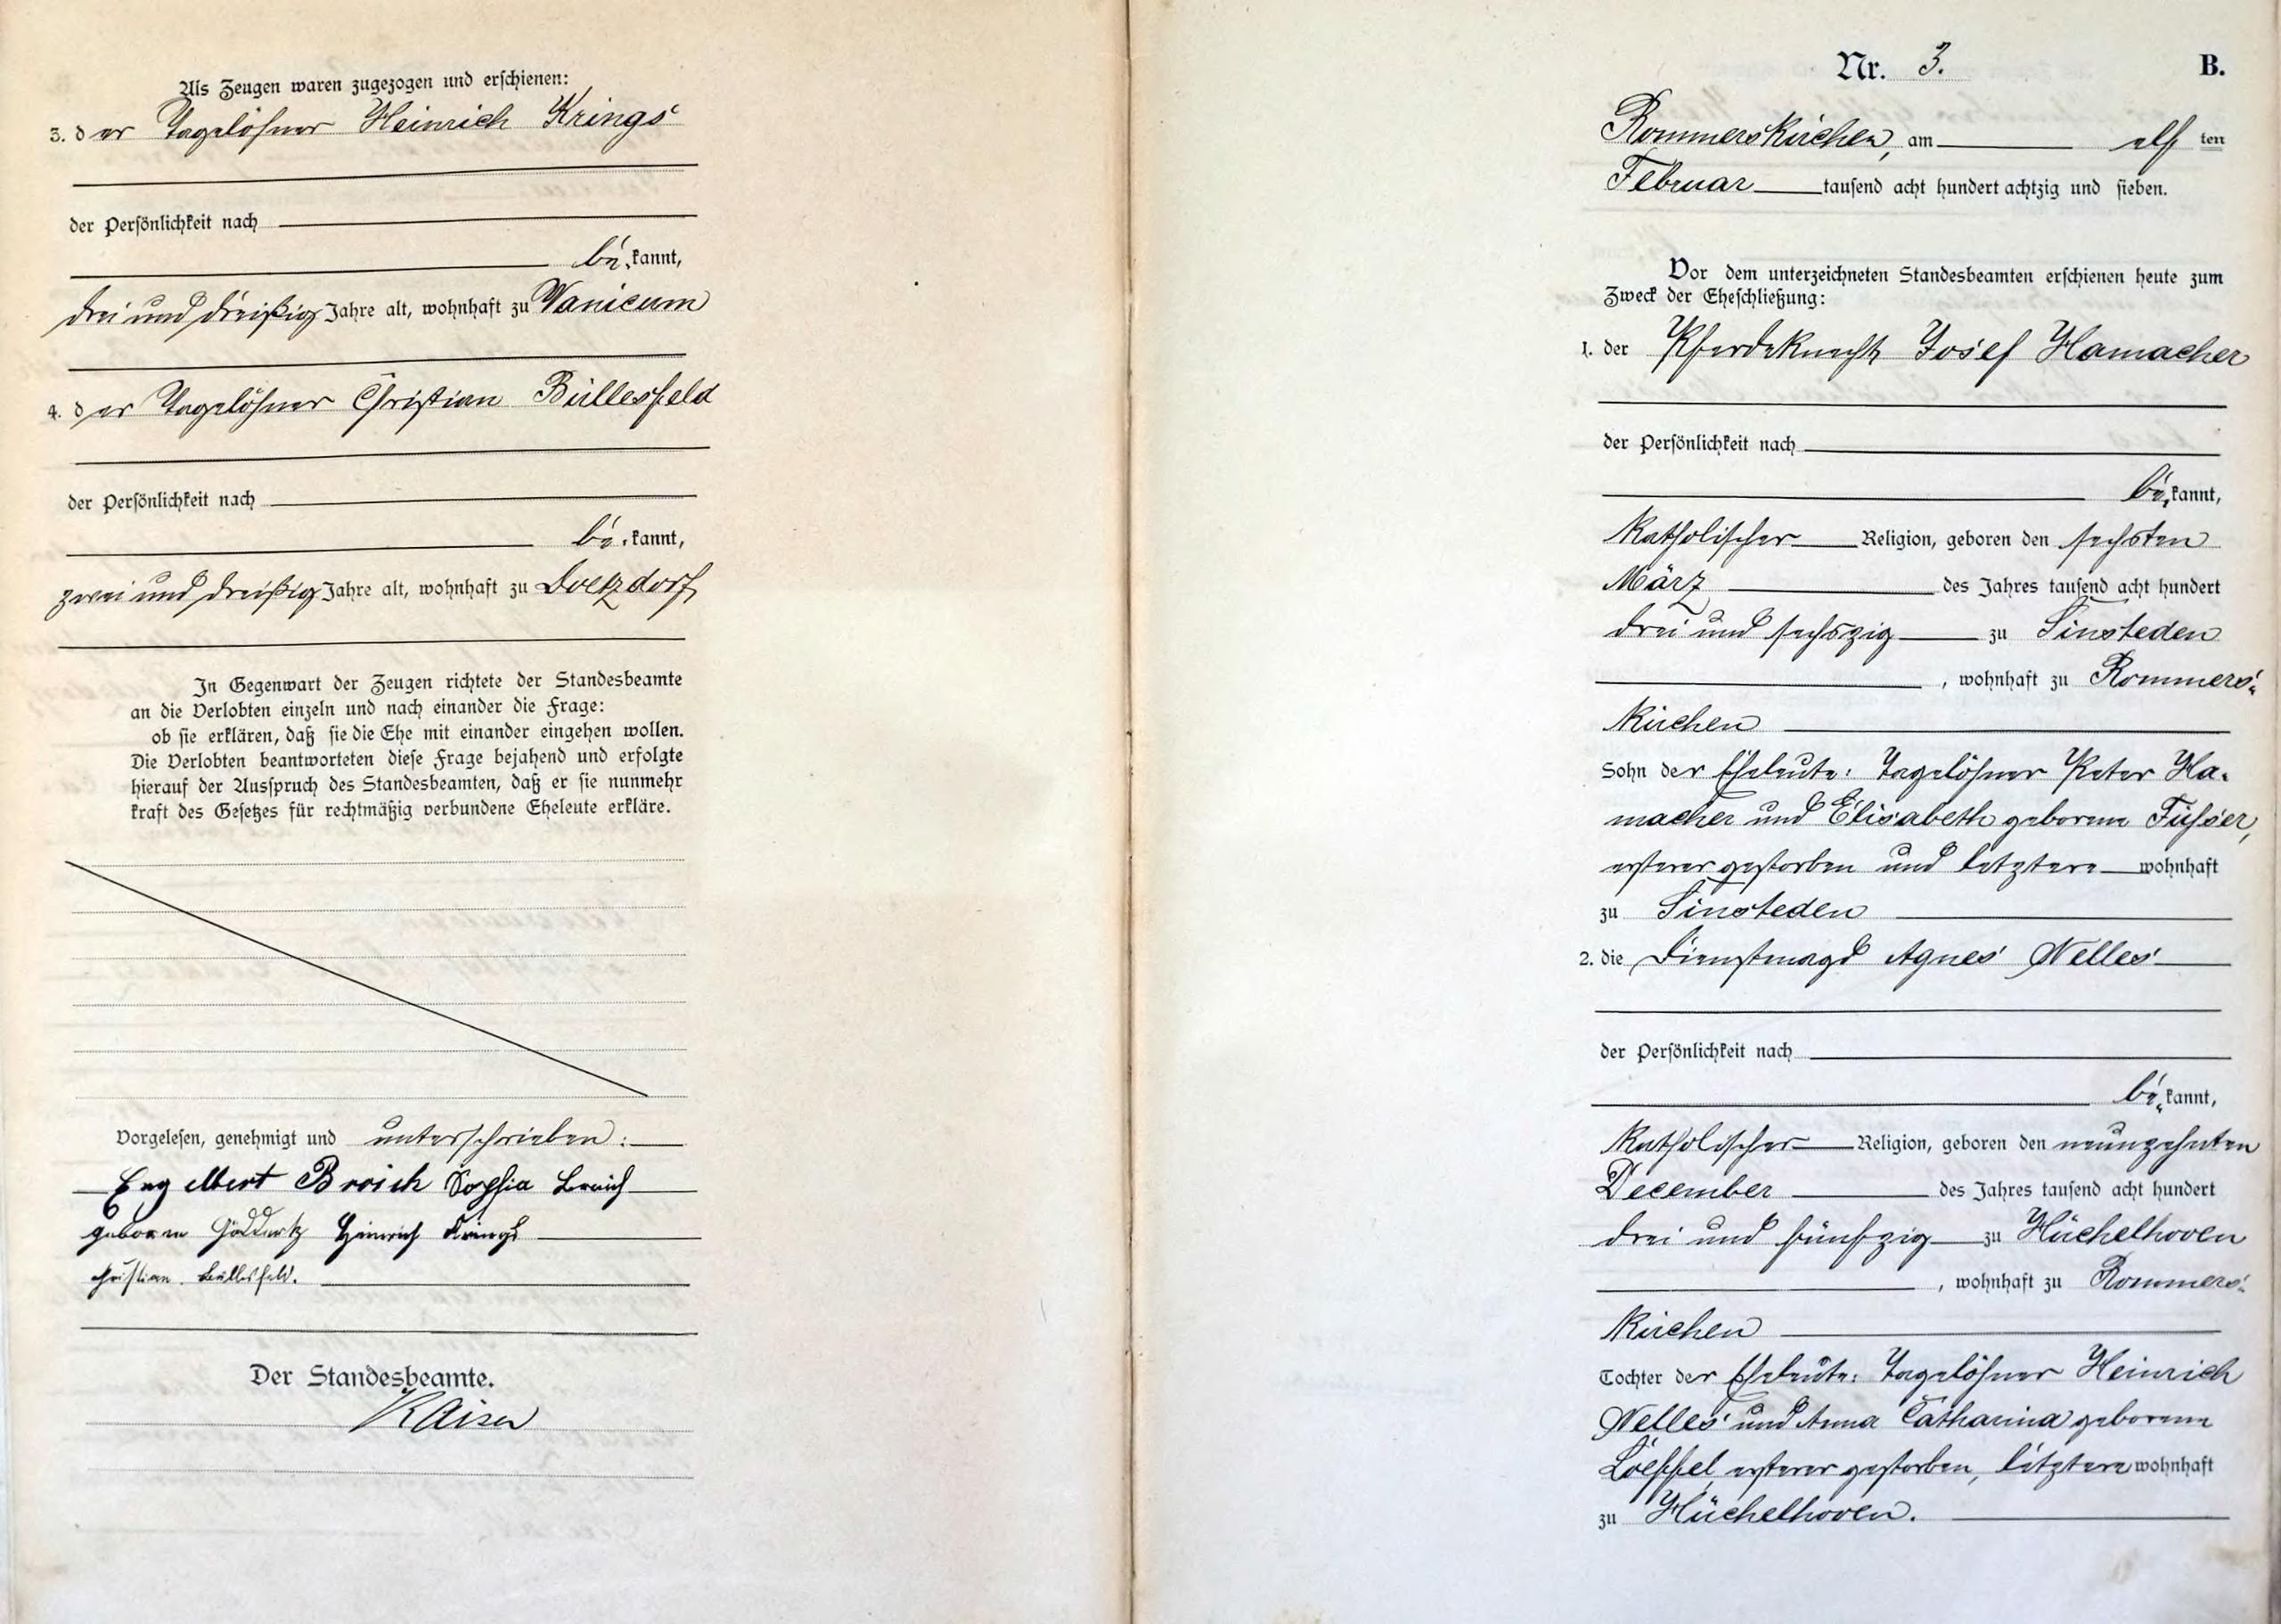 Als Zeugen waren zugezogen und erschienen:
3. der Tagelöhner Heinrich Krings
der Persönlichkeit nach
be kannt,
drei und dreißig Jahre alt, wohnhaft zu Vanicum
4. der Tagelöhner Christian Büllesfeld
der Persönlichkeit nach
be kannt,
zwei und dreißig Jahre alt, wohnhaft zu Doetzdorf
In Gegenwart der Zeugen richtete der Standesbeamte
an die Verlobten einzeln und nach einander die Frage:
ob sie erklären, daß sie die Ehe mit einander eingehen wollen.
Die Verlobten beantworteten diese Frage bejahend und erfolgte
hierauf der Ausspruch des Standesbeamten, daß er sie nunmehr
kraft des Gesetzes für rechtmäßig verbundene Eheleute erkläre.
Vorgelesen, genehmigt und unterschrieben:
Engelbert Broich Sophia Broich
geborene Göddertz Heinrich Krings
Christian Büllesfeld.
Der Standesbeamte.
Kaiser
Nr. 3. B.
Rommerskirchen, am elf ten
Februar tausend acht hundert achtzig und sieben.
Vor dem unterzeichneten Standesbeamten erschienen heute zum
Zweck der Eheschließung:
1. der Pferdeknecht Josef Hamacher
der Persönlichkeit nach
be kannt,
katholischer Religion, geboren den sechsten
März des Jahres tausend acht hundert
drei und sechszig zu Sinsteden
, wohnhaft zu Rommers-
kirchen
Sohn der Eheleute: Tagelöhner Peter Ha-
macher und Elisabeth geborene Füsser,
ersterer gestorben und letztere wohnhaft
zu Sinsteden
2. die Dienstmagd Agnes Nelles
der Persönlichkeit nach
be kannt,
katholischer Religion, geboren den neunzehnten
December des Jahres tausend acht hundert
drei und fünfzig zu Hüchelhoven
, wohnhaft zu Rommers-
kirchen
Tochter der Eheleute: Tagelöhner Heinrich
Nelles und Anna Catharina geborene
Loeffel, ersterer gestorben, letztere wohnhaft
zu Hüchelhoven.